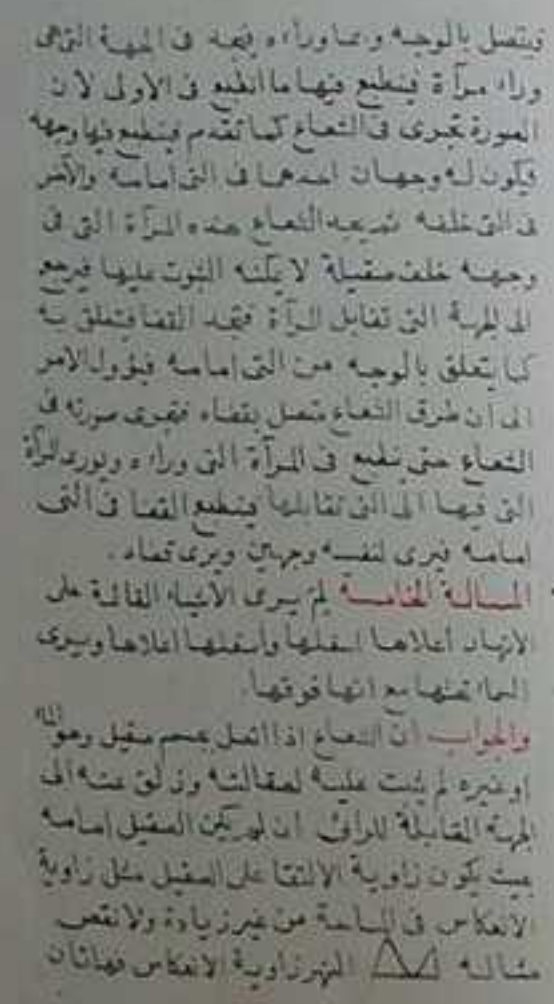 فيتصل بالوجه وبما وراءه فيجد فى الجهة التى هى
وراء مرآة فينطبع فيها ما انطبع فى الاولى لان
الصورة تجرى فى الشعاع كما تقدم فينطبع فيها وجهه
فيكون له وجهان احدهما فى التى امامه والآخر
فى التى خلفه ثم يجد الشعاع هذه المرآة التى فى
وجهه خلف صقيلة لا يمكنه الثبوت عليها فيرجع
الى الجهة التى تقابل المرآة فيجد القفا فيتعلق به
كما يتعلق بالوجه من التى امامه فيؤول الامر
الى ان طرق الشعاع متصل بقفاه فتجرى صورته فى
الشعاع حتى ينطبع فى المرآة التى وراءه ويورى المرآة
التى فيها الى التى تقابلها فينطبع القفا فى التى
امامه فيرى لنفسه وجهين ويرى قفاه .
المسالة الخامسة لِمَ يرى الأشياء القائمة على
الانهار أعلاها اسفلها وأسفلها اعلاها ويرى
السماء تحتها مع انها فوقها .
والجواب أن الشعاع اذا اتصل بجسم صقيل وهو الماء
او غيره لم يثبت عليه لصقالته وزلق عنه الى
الجهة المقابلة للرائى ان لم يكن الصقيل امامه
بحيث يكون زاوية الالتقا على الصقيل مثل زاوية
الانعكاس فى المساحة من غير زيادة ولا نقص
مثاله النهر زاوية الانعكاس فهاتان